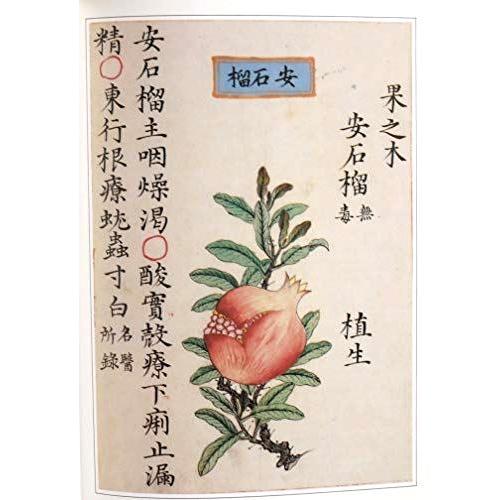 安石榴
果之木
安石榴 無毒
植生
安石榴主咽燥渴○酸實殼療下痢止漏
精○東行根療蚘蟲寸白 名醫所錄